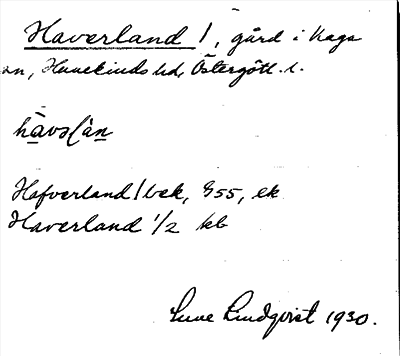 Haverland 1, gård i Kaga
sn, Hanekinds hd, Östergötl. l.
hàvəɭàn
Hofverland 1 bek, GSS, ek
Haverland 1/2 kb
Sune Lindqvist 1930.